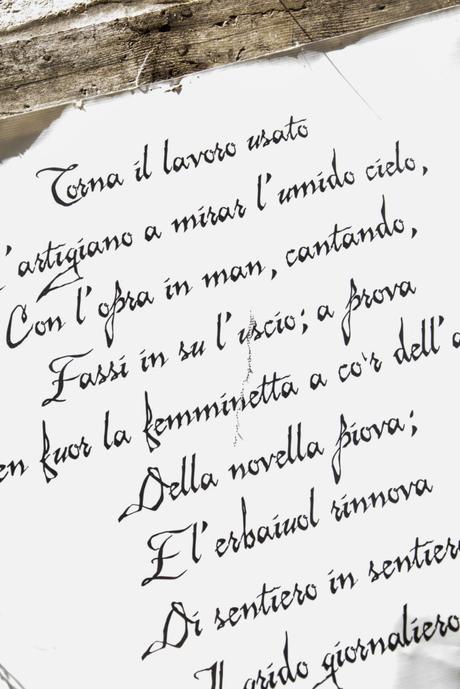 Torna il lavoro usato
L'artigiano a mirar l'umido cielo,
Con l'opra in man, cantando,
Fassi in su l'uscio; a prova
en fuor la femminetta a co'r dell'a
Della novella piova;
E l'erbaiuol rinnova
Di sentiero in sentiero
Il grido giornaliero